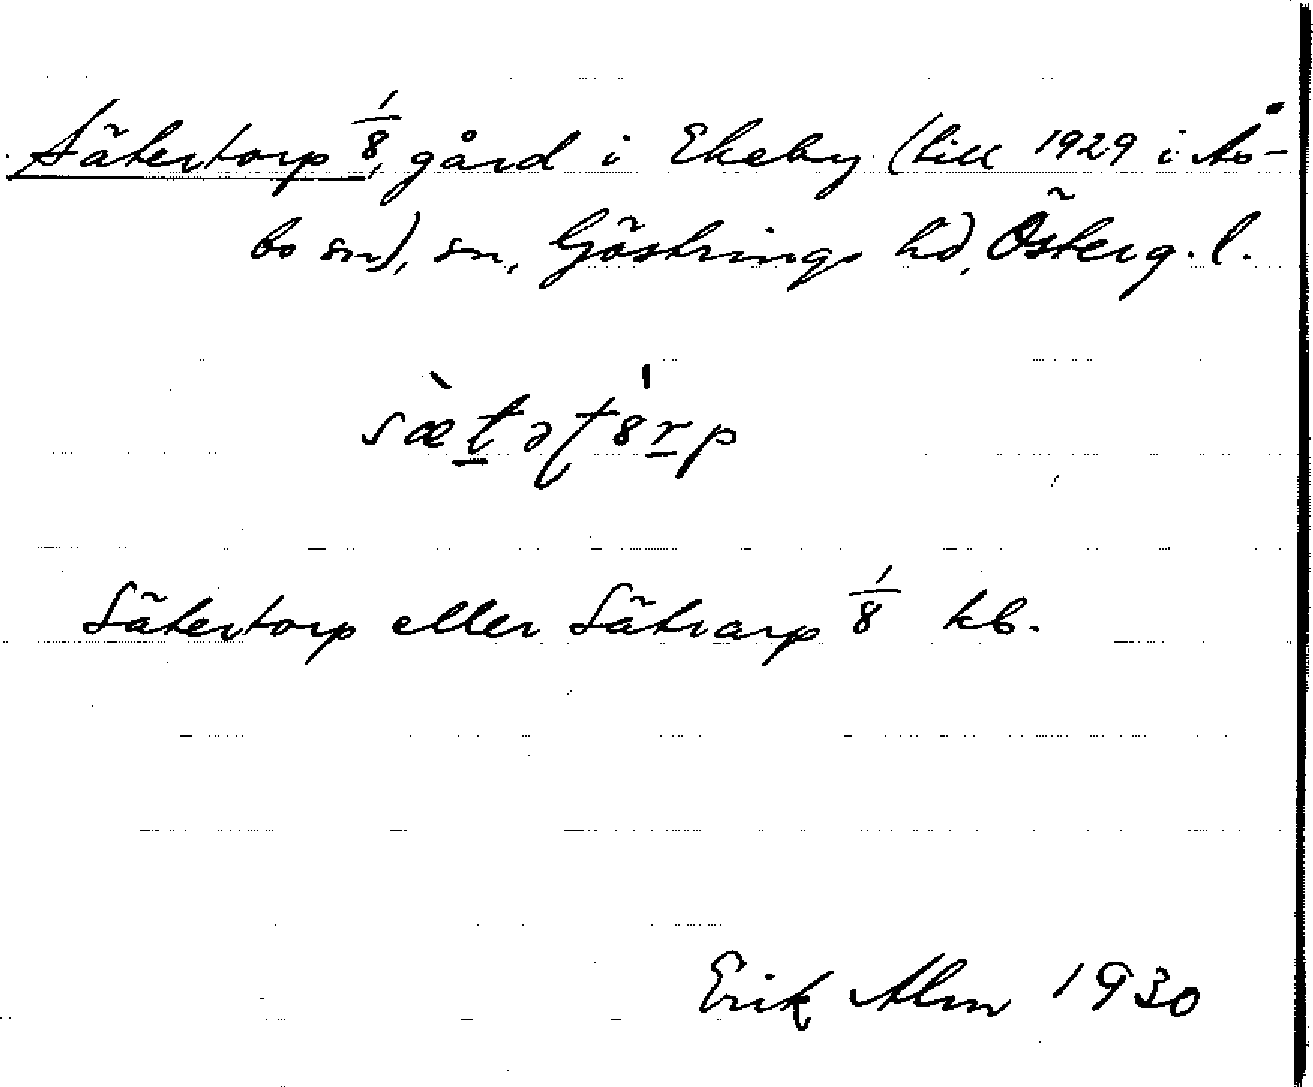 Sätertorp 1/8, gård i Ekeby (till 1929 i Ås-
bo sn), sn, Göstrings hd, Österg. l.
sæ̀tətʈ8́rp
Sätertorp eller Sätrarp 1/8 kb.
Erik Alm 1930